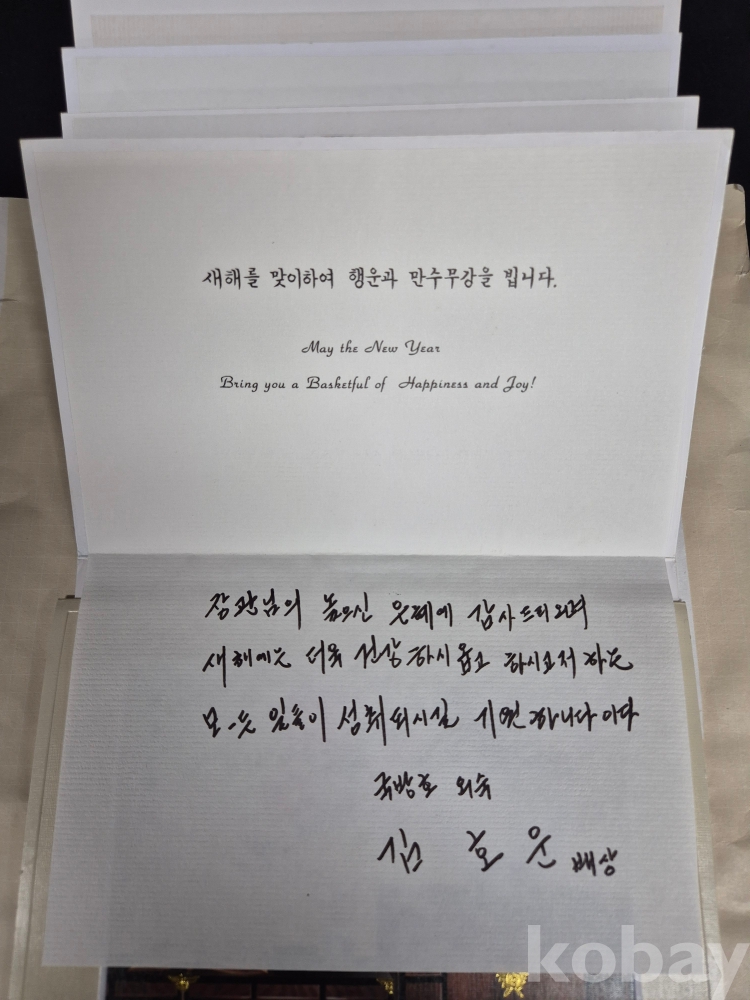 새해를 맞이하여 행운과 만수무강을 빕니다.
May the New Year
Bring you a Basketful of Happiness and Joy!
장관님의 높으신 은혜에 감사드리오며
새해에는 더욱 건강하시옵고 하시고저 하는
모-든 일들이 성취되시길 기원하나이다
국방호 외숙
김 호 은 배상
kobay